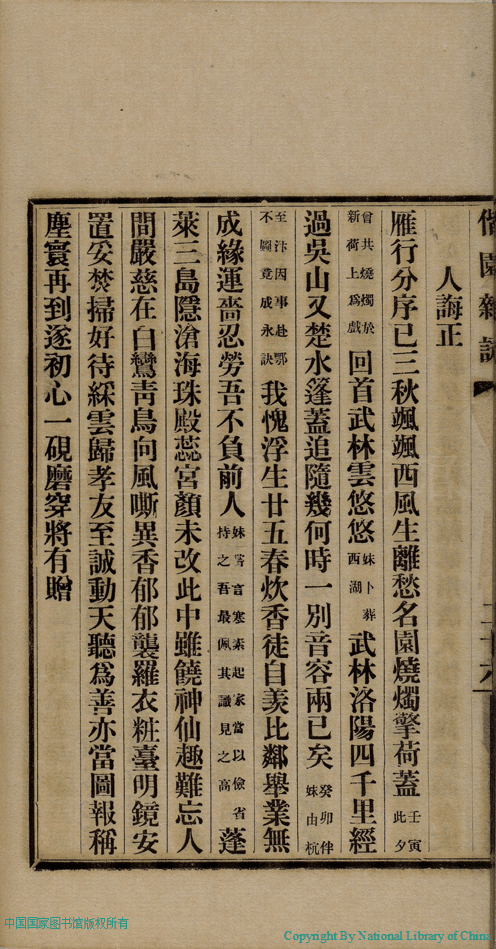 偕園雜詠
人誨正
雁行分序已三秋颯颯西風生離愁名園燒燭擎荷蓋壬寅此夕
曾共燒燭於新荷上爲戲回首武林雲悠悠妹卜葬西湖武林洛陽四千里經
過吳山又楚水篷蓋追隨幾何時一別音容兩已矣癸卯伴妹由杭
至汴因事赴鄂不圖竟成永訣我愧浮生廿五春炊香徒自羨比鄰舉業無
成緣運嗇忍勞吾不負前人妹嘗言寒素起家當以儉省持之吾最佩其識見之高蓬
萊三島隱滄海珠殿蕊宮顏未改此中雖饒神仙趣難忘人
間嚴慈在白鸞靑鳥向風嘶異香郁郁襲羅衣粧臺明鏡安
置妥焚掃好待綵雲歸孝友至誠動天聽爲善亦當圖報稱
塵寰再到遂初心一硯磨穿將有贈
中国国家图书馆版权所有
Copyright By National Library of China